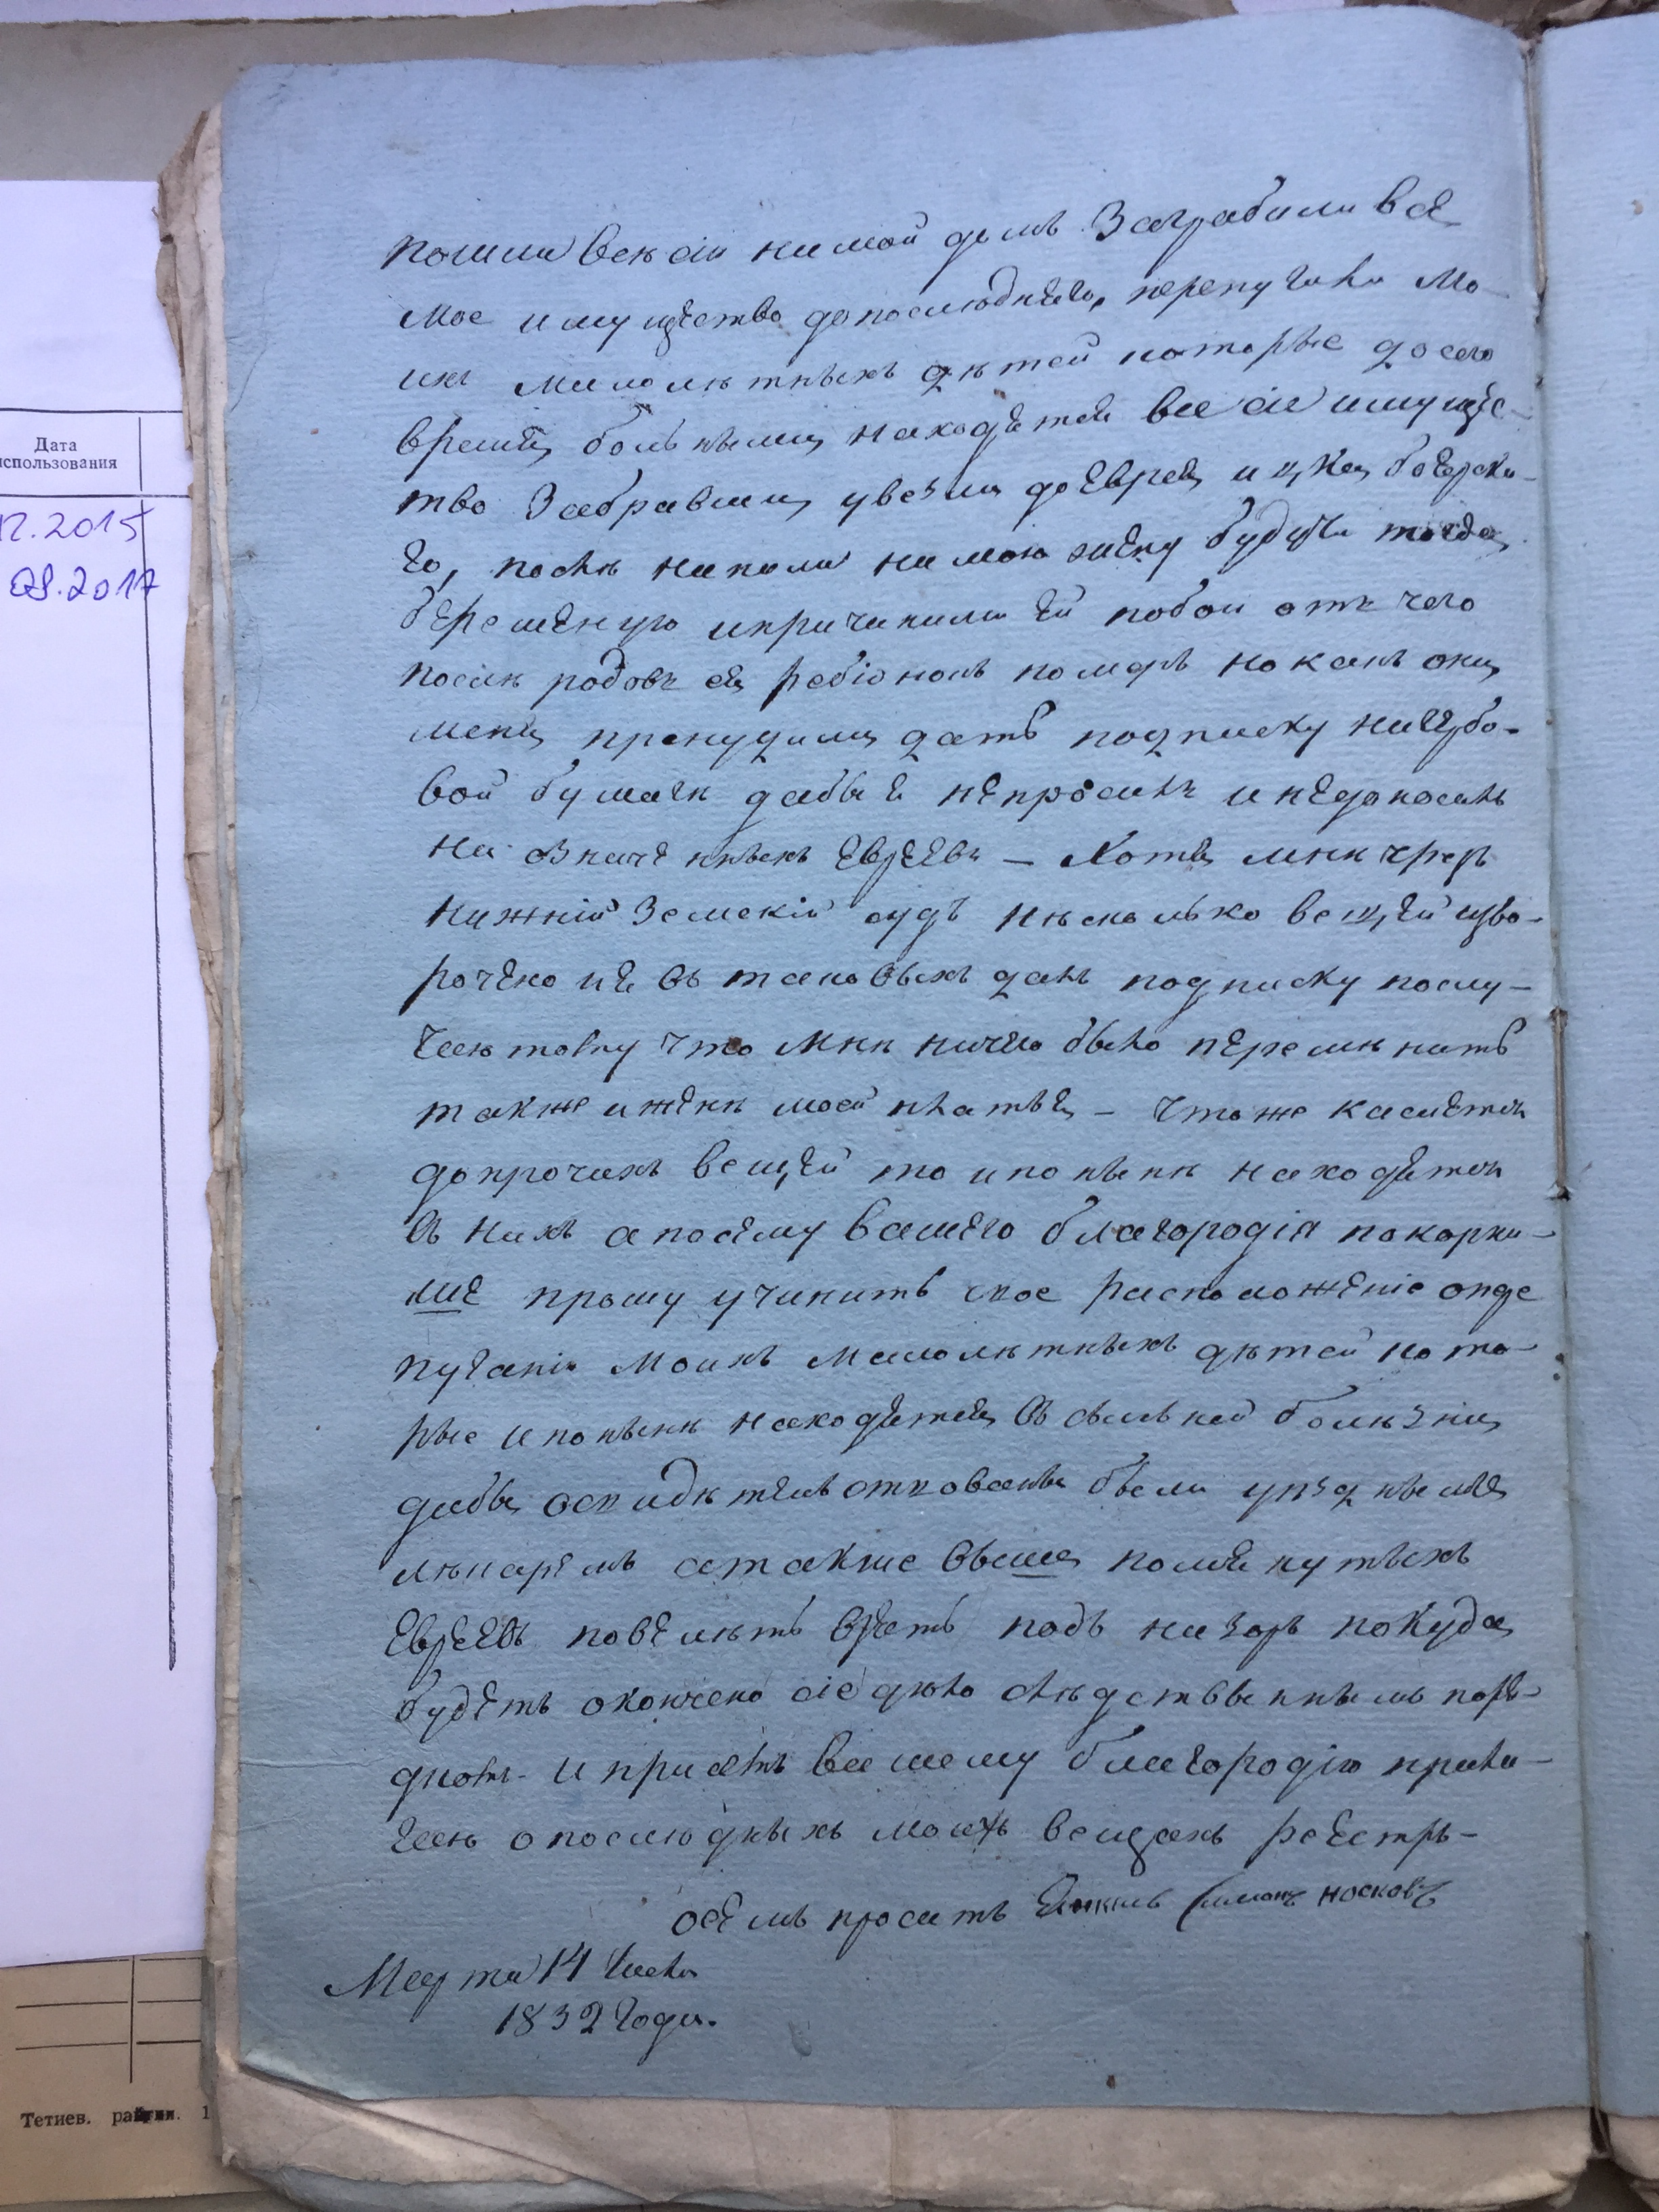 напали всѣ сіи на мой домъ Заграбили всё
мое имущество допослѣднего, перепугали мо-
ихъ малолѣтныхъ дѣтей которые досего
времены больными находятся все сие имущес-
тво Забравши увезли до Еврея ицка боярско-
го, послѣ напали на мою жену будучи тогда
беременую ипричинили ей побои отъ чего
послѣ родовъ ея ребіонокъ померъ но какъ они
меня прокудили дать подписку нагербо-
вой бумагѣ дабы я непросилъ инедоносилъ
на означенныхъ Евреевъ – Хотя мнѣ чрезъ
нижній Земскій судъ нѣсколько вещей изво-
рочено ия въ таковыхъ далъ подписку послу-
чаю тому что мнѣ ничего было перемѣнить
также ижѣнѣ моей платья – Чтоже касается
допрочихъ вещей то ипонынѣ находятся
въ нихъ апосему вашего благородія покорнѣ-
ше прошу учинить свое расположеніе опере
пуганіи моихъ малолѣтныхъ дѣтей кото-
рые ипонынѣ находятся въ сыльной болѣзни
дабы освидѣтельствованы были уѣзднымъ
лѣкаремъ атакже выше помянутыхъ
Евреевъ повелѣть взять подъ назоръ покуда
будетъ окончено сіе дѣло слѣдственнымъ поря-
дкомъ – и присемъ вашему благородію прила-
гаю опослѣдныхъ моихъ вещахъ реестръ –
осемъ проситъ Симонъ носковъ
Марта 14 Числа
1832 Года.
Дата
использования
12.2015
08.2017
Тетиев. 1